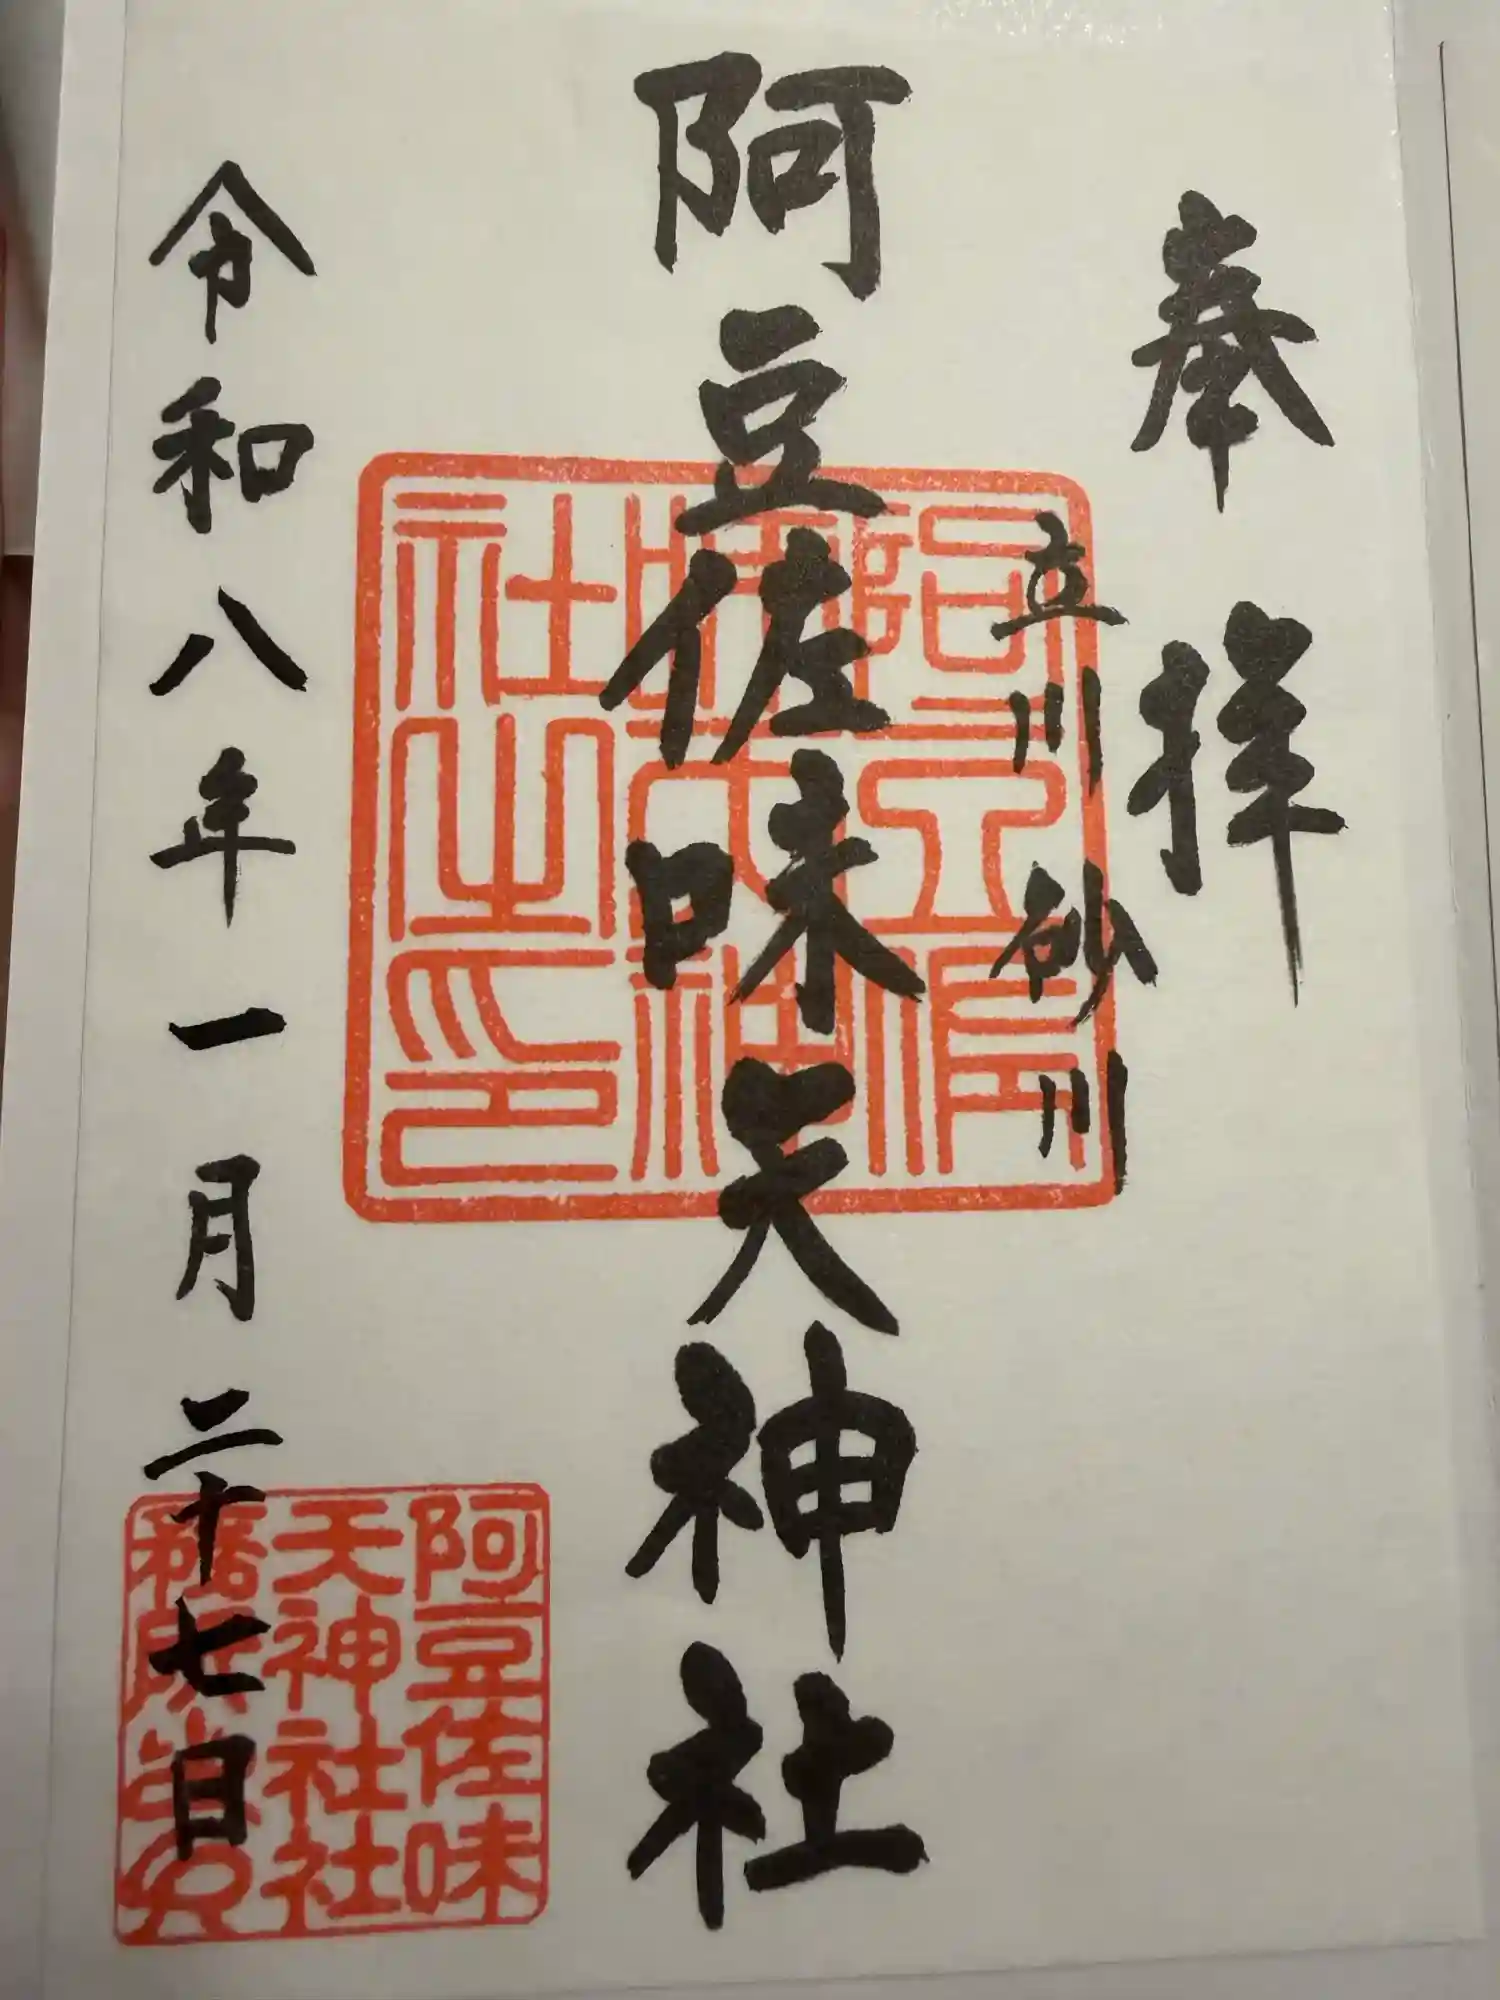 奉拝
立川砂川
阿豆佐味天神社
令和八年一月二十七日
阿豆佐味
天神社社
務所之印